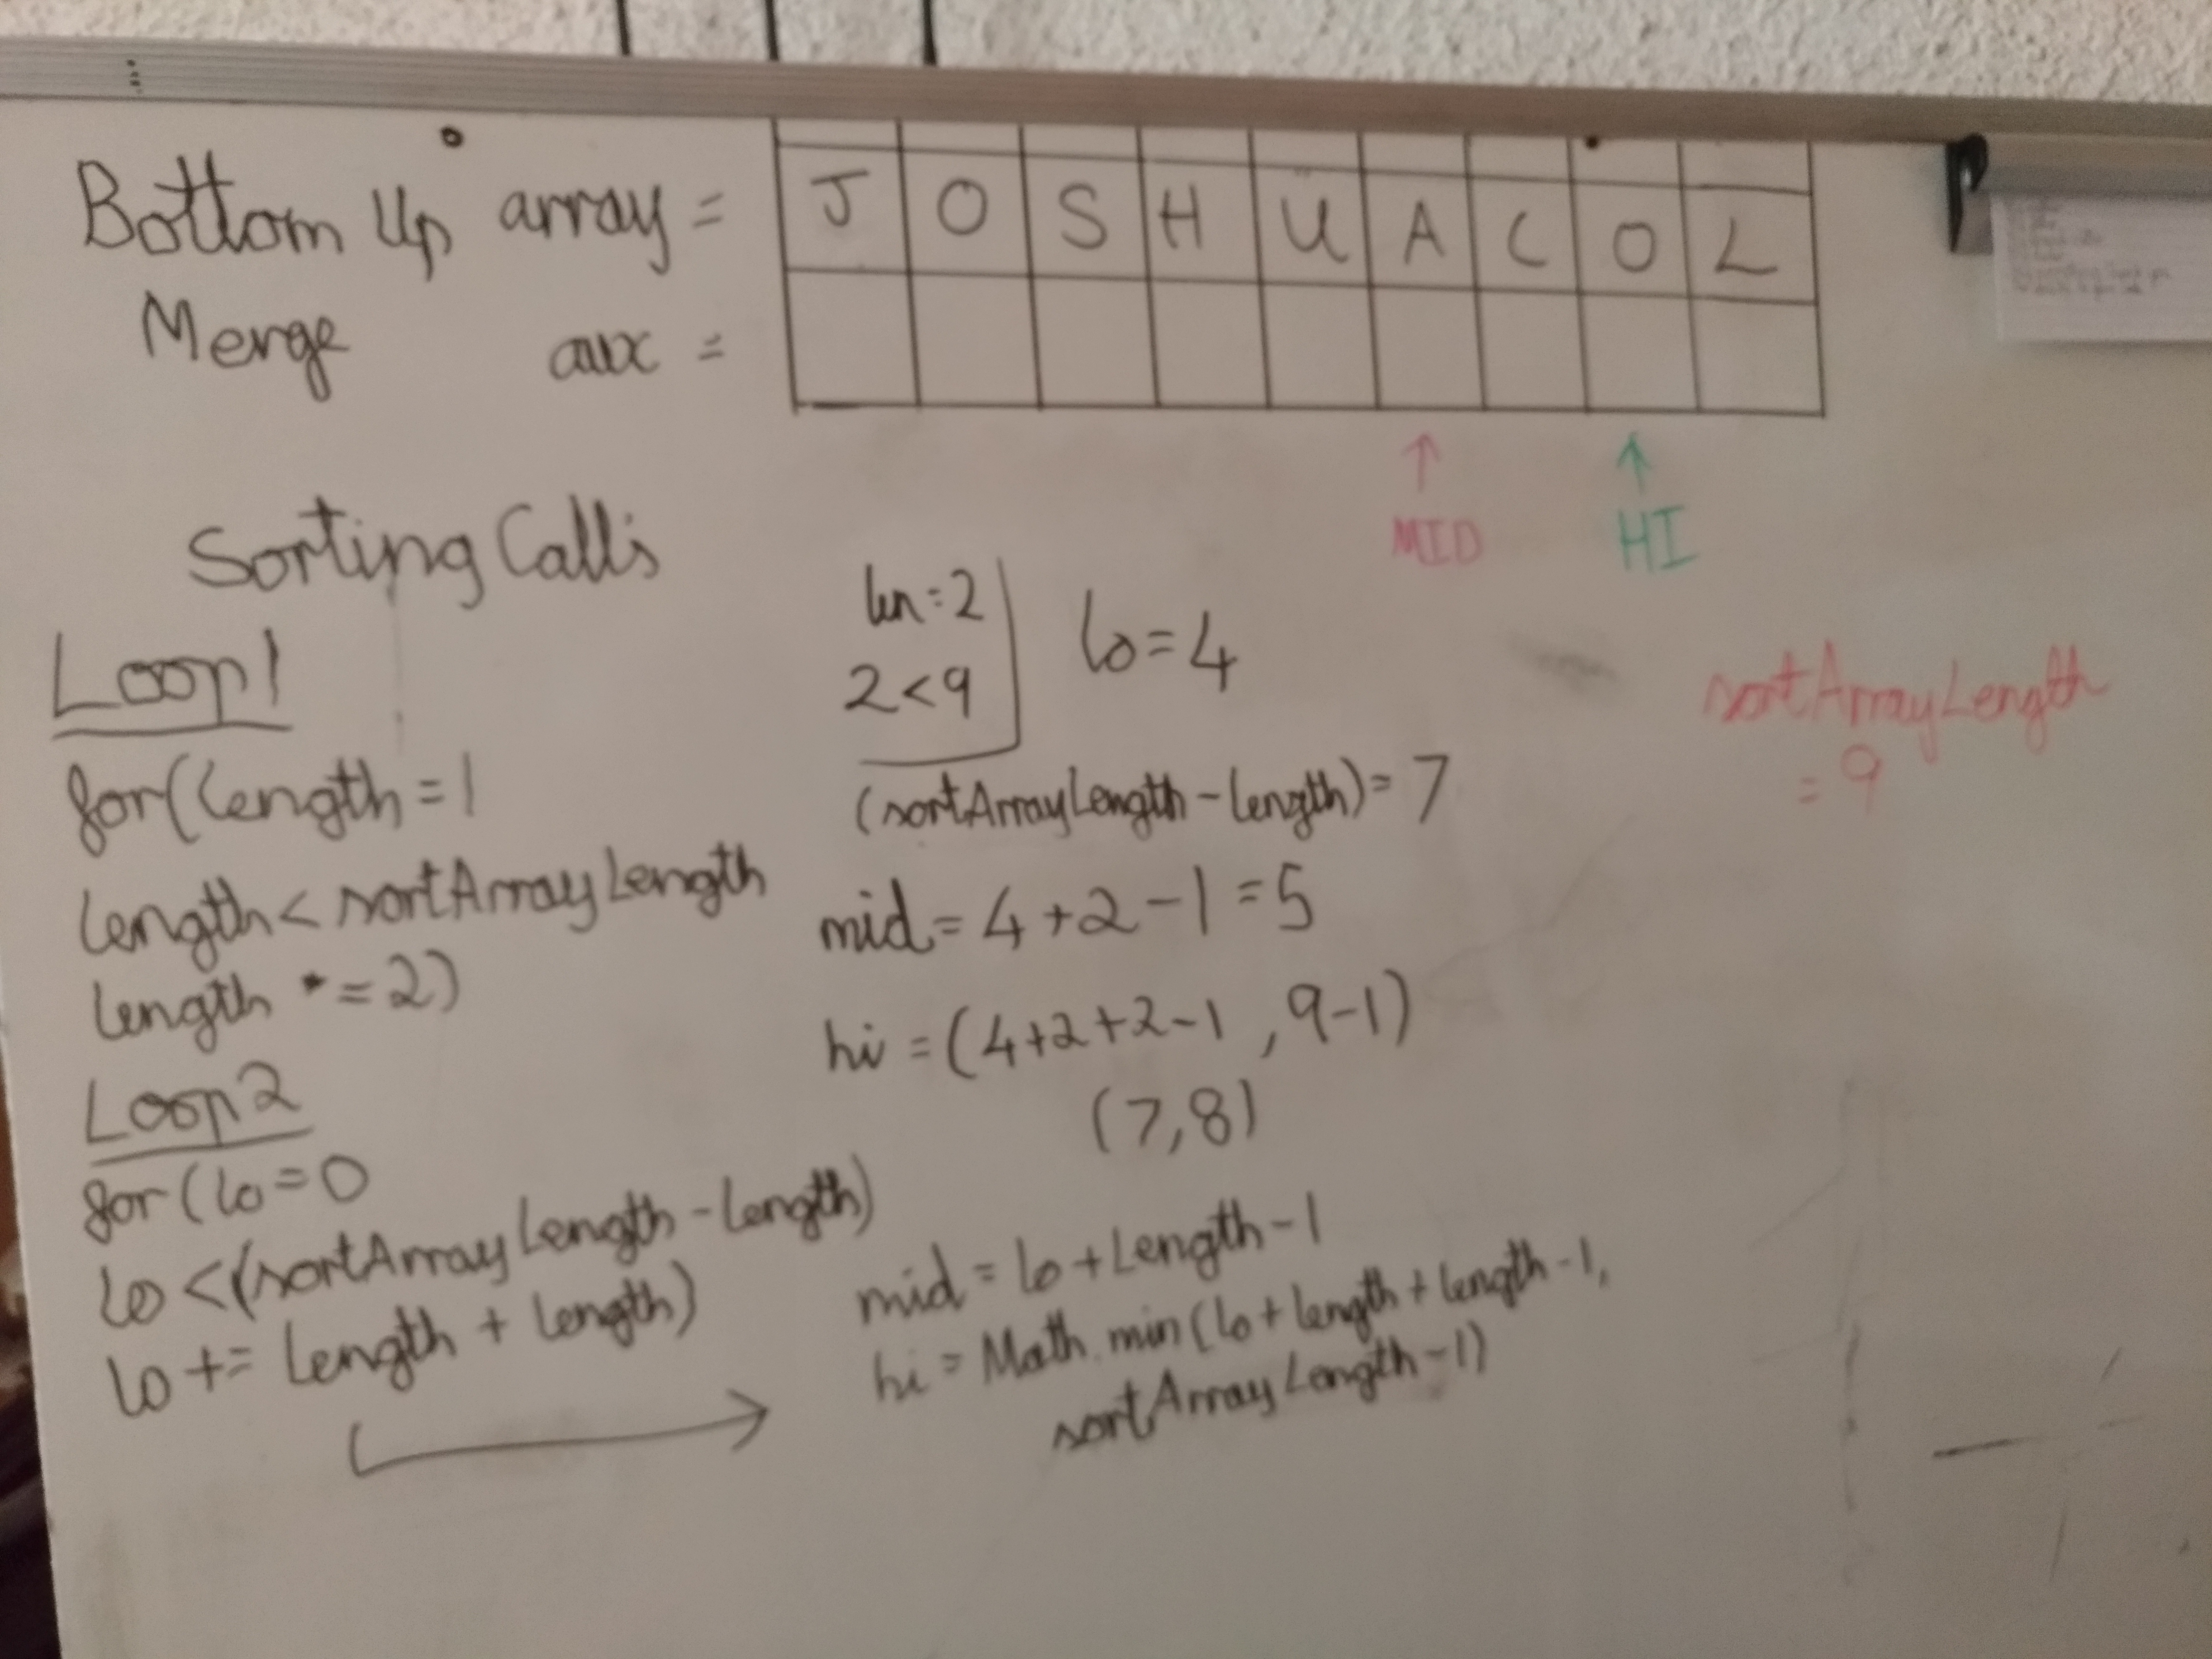 Bottom Up array = J O S H U A C O L
Merge aux =
MID HI
Sorting Calls
Loop 1
for(length = 1
length < sortArrayLength
length *= 2)
Loop 2
for (lo = 0
lo < (sortArrayLength - length)
lo += length + length)
len = 2
2 < 9
lo = 4
(sortArrayLength - length) = 7
mid = 4 + 2 - 1 = 5
hi = (4+2+2-1, 9-1)
(7,8)
mid = lo + length - 1
hi = Math.min(lo + length + length - 1,
sortArrayLength - 1)
sortArrayLength
= 9